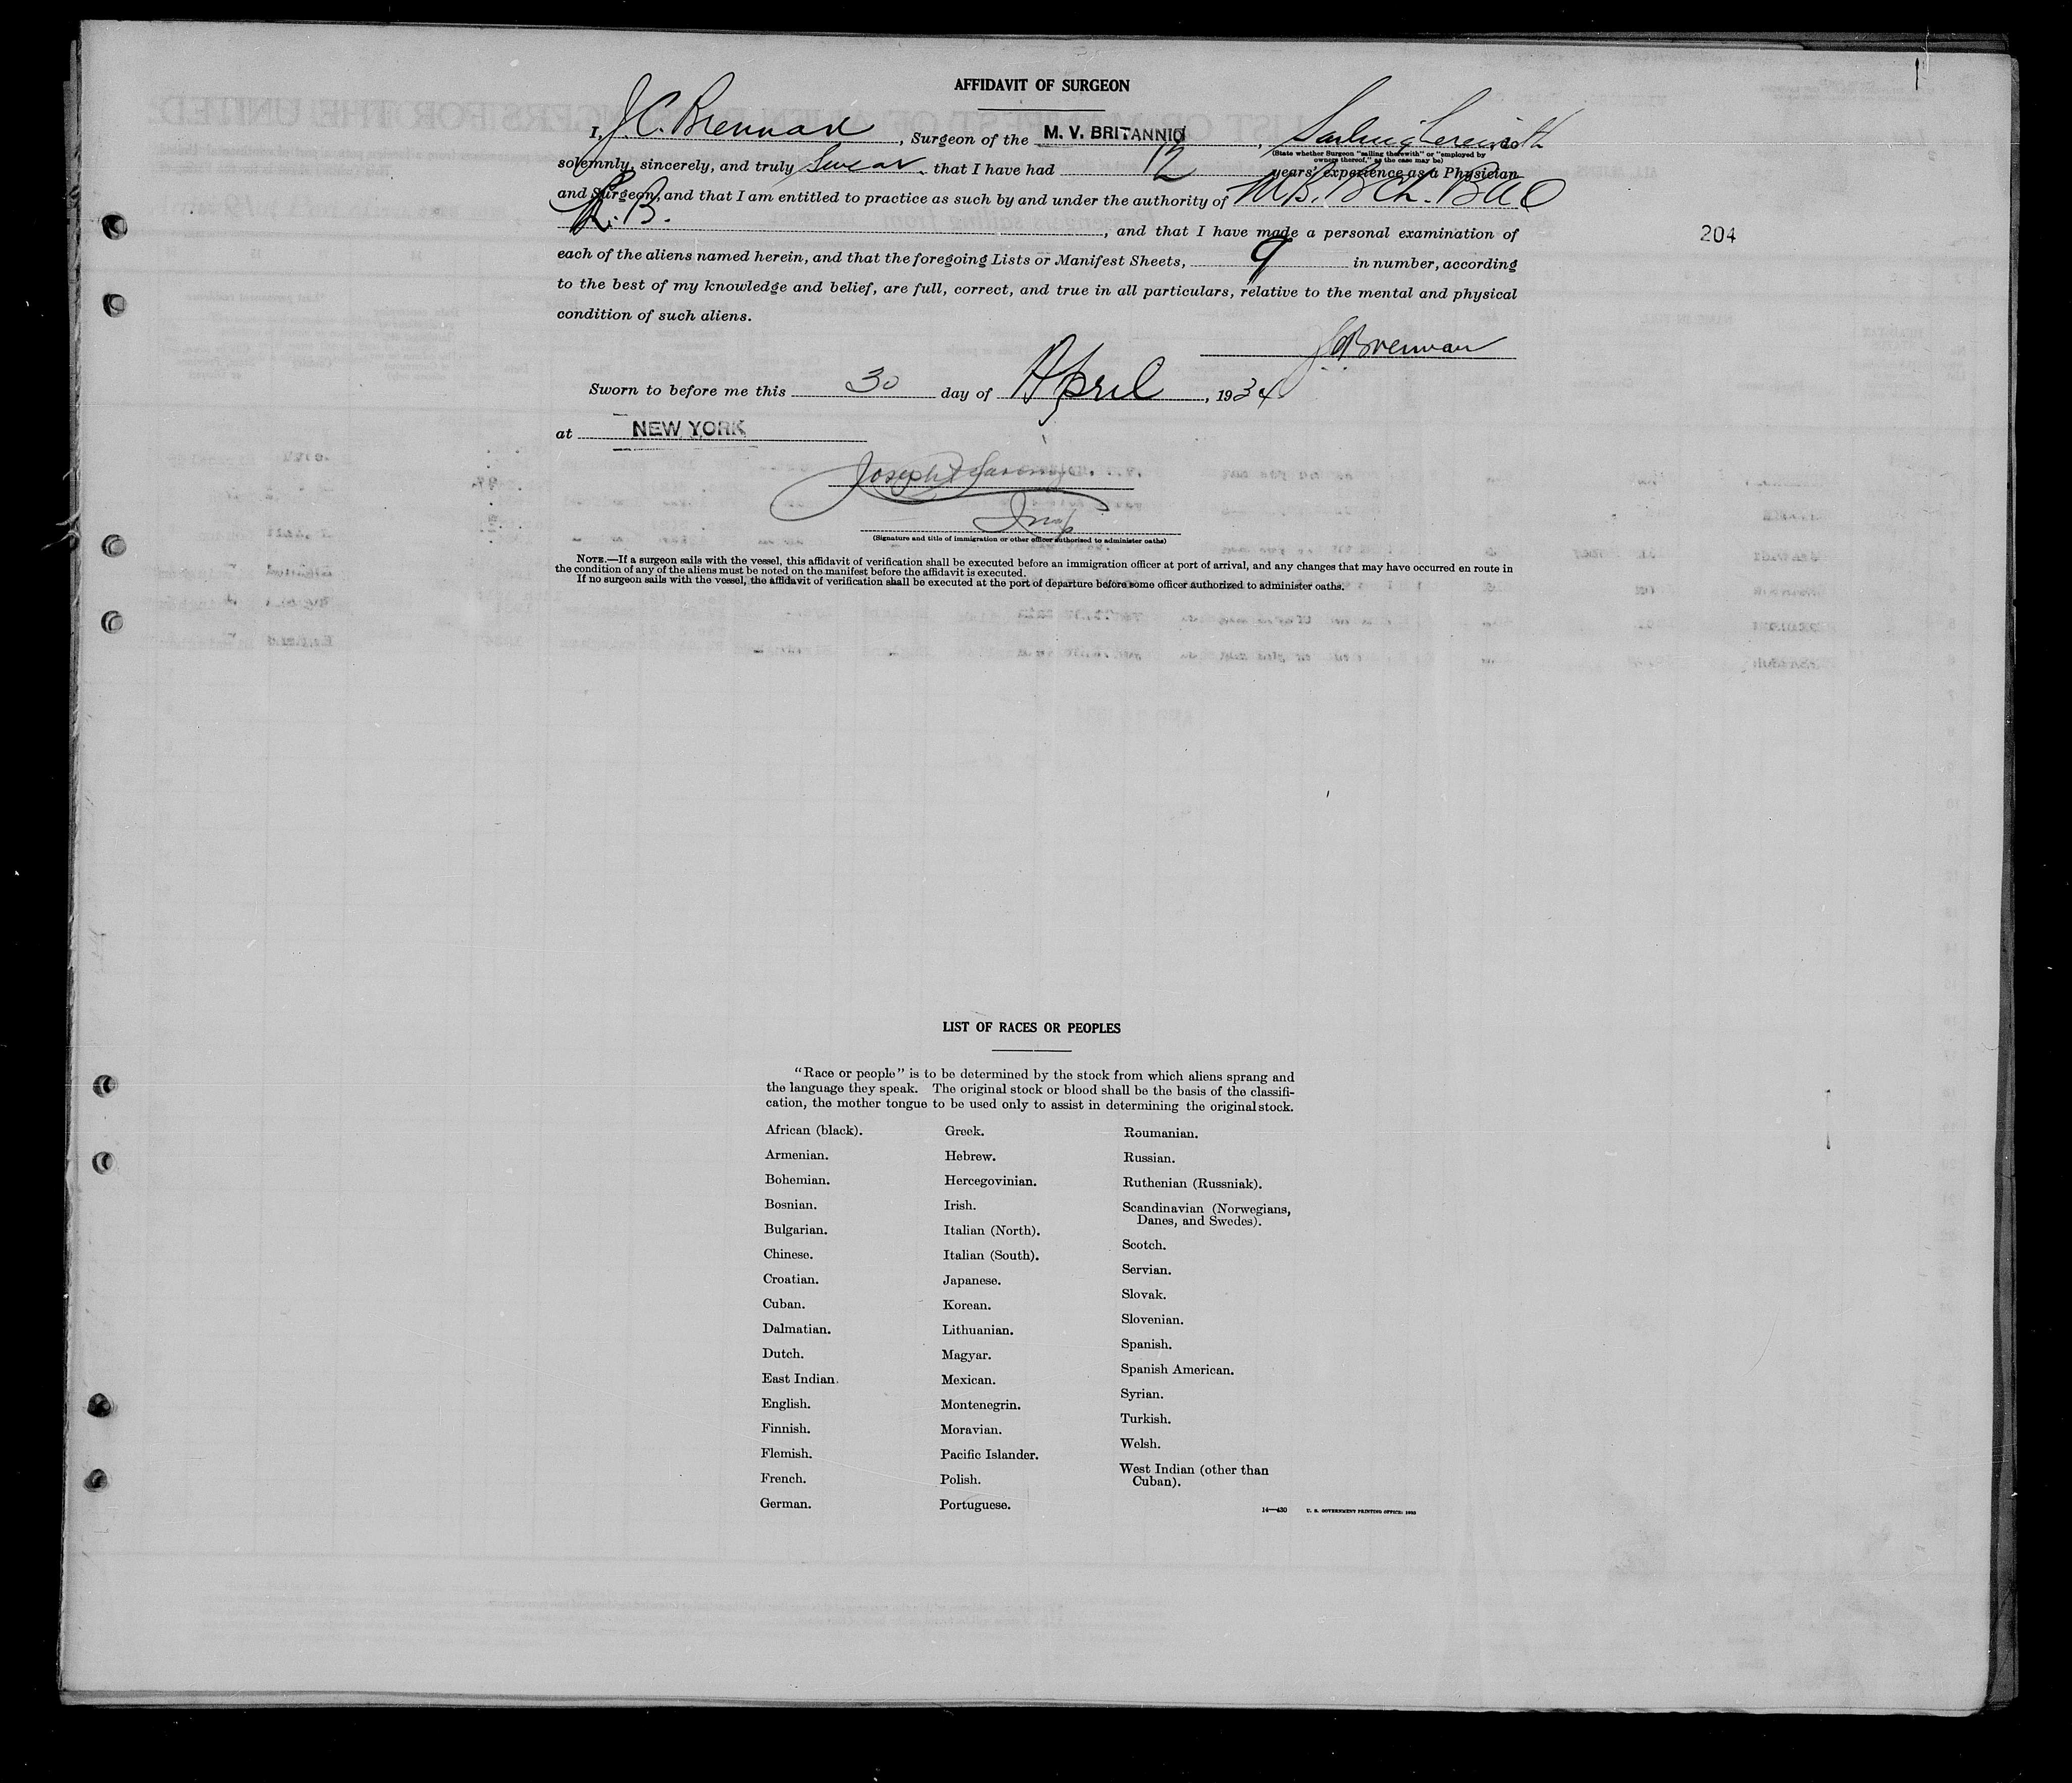 AFFIDAVIT OF SURGEON
I, J. C. Brennan, Surgeon of the M. V. BRITANNIC, Sailing therewith
(State whether Surgeon "sailing therewith" or "employed by
owners thereof," as the case may be)
solemnly, sincerely, and truly swear that I have had 12 years' experience as a Physician
and Surgeon, and that I am entitled to practice as such by and under the authority of M.B. B.Ch. B.A.O
, and that I have made a personal examination of
204
each of the aliens named herein, and that the foregoing Lists or Manifest Sheets, 9 in number, according
to the best of my knowledge and belief, are full, correct, and true in all particulars, relative to the mental and physical
condition of such aliens.
J C Brennan
Sworn to before me this 30 day of April, 1934
at NEW YORK
Joseph
Insp
(Signature and title of immigration or other officer authorized to administer oaths)
NOTE.—If a surgeon sails with the vessel, this affidavit of verification shall be executed before an immigration officer at port of arrival, and any changes that may have occurred en route in
the condition of any of the aliens must be noted on the manifest before the affidavit is executed.
If no surgeon sails with the vessel, the affidavit of verification shall be executed at the port of departure before some officer authorized to administer oaths.
LIST OF RACES OR PEOPLES
"Race or people" is to be determined by the stock from which aliens sprang and
the language they speak. The original stock or blood shall be the basis of the classifi-
cation, the mother tongue to be used only to assist in determining the original stock.
African (black).
Armenian.
Bohemian.
Bosnian.
Bulgarian.
Chinese.
Croatian.
Cuban.
Dalmatian.
Dutch.
East Indian.
English.
Finnish.
Flemish.
French.
German.
Greek.
Hebrew.
Hercegovinian.
Irish.
Italian (North).
Italian (South).
Japanese.
Korean.
Lithuanian.
Magyar.
Mexican.
Montenegrin.
Moravian.
Pacific Islander.
Polish.
Portuguese.
Roumanian.
Russian.
Ruthenian (Russniak).
Scandinavian (Norwegians,
Danes, and Swedes).
Scotch.
Servian.
Slovak.
Slovenian.
Spanish.
Spanish American.
Syrian.
Turkish.
Welsh.
West Indian (other than
Cuban).
14—430 U. S. GOVERNMENT PRINTING OFFICE: